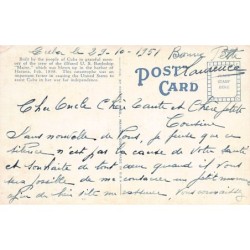 Cuba le 29-10-1951
Built by the people of Cuba in grateful memory of the men of the illfated U. S. Battleship "Maine," which was blown up in the harbor of Havana, Feb. 1898. This catastrophe was an important factor in causing the United States to assist Cuba in her war for independence.
POST CARD
Cher Oncle Chère Tante et Chère petite
Cousine
Sans nouvelle de Part, je pense que ce
silence n'est pas la cause de votre santé
et souhaite de tout cœur quand il vous
sera possible de me contacter un petit mot
afin de